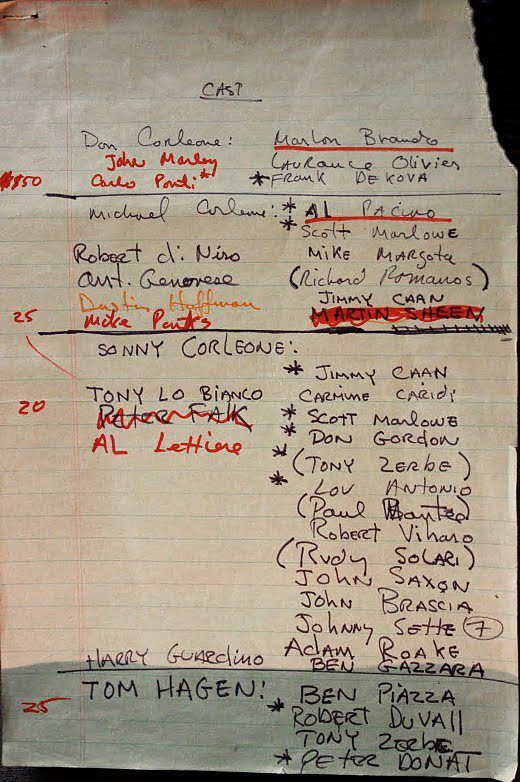 CAST
Don Corleone: Marlon Brando
John Marley Laurance Olivier
Carlo Ponti* * FRANK DE KOVA
Michael Corleone: * AL PACINO
* Scott Marlowe
Robert di Niro MIKE MARGOTA
Ant. Genovese (Richard Romanos)
Dustin Hoffman JIMMY CAAN
25 Mike Parks MARTIN SHEEN
SONNY CORLEONE:
* JIMMY CAAN
TONY LO BIANCO CARMINE CARIDI
20 Peter FALK * SCOTT MARLOWE
AL Lettiere * DON GORDON
* (TONY ZERBE)
* LOU ANTONIO
(Paul
Robert Viharo
(RUDY SOLARI)
JOHN SAXON
JOHN BRASCIA
JOHNNY SETTE 7
ADAM ROAKE
HARRY GUARDINO BEN GAZZARA
TOM HAGEN: BEN PIAZZA
25 * ROBERT DUVALL
TONY ZERBE
* PETER DONAT